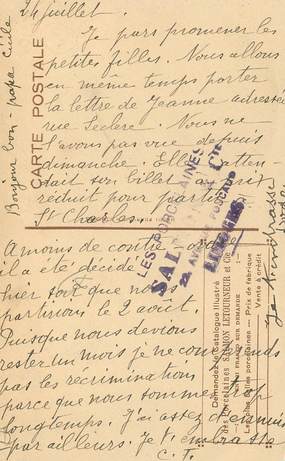 24 juillet.
Je pars promener les
petites filles. Nous allons
en même temps porter
la lettre de Jeanne adressée
rue Leclerc. Nous ne
l'avons pas vue depuis
dimanche. Elle atten-
dait son billet au prix
réduit pour partir
St Charles.
A moins de contre-ordre
il a été décidé
hier soir que nous
partirons le 2 août.
Puisque nous devions
rester un mois je ne comprends
pas les recriminations
parce que nous sommes trop
longtemps. J'ai assez d'ennuis
par ailleurs. Je t'embrasse
C.T.
Bonjour bon-papa
CARTE POSTALE
LES PORCELAINES
SAL
LIMOGES
Demandez le Catalogue illustré
Porcelaines SALMON, LETOURNEUR et Cie
FRANCO SUR DEMANDE
Les plus belles porcelaines — Prix de fabrique
Vente à crédit
Je t'embrasse